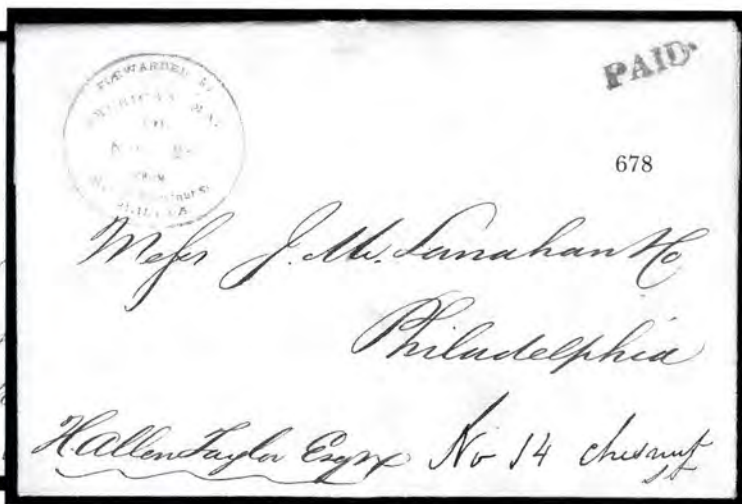 FORWARDED BY
AMERICAN MAIL
CO.
PHILADA
PAID
678
Messrs J. M. Lanahan & Co
Philadelphia
H. Allen Taylor Esqr No 14 chesnut
st